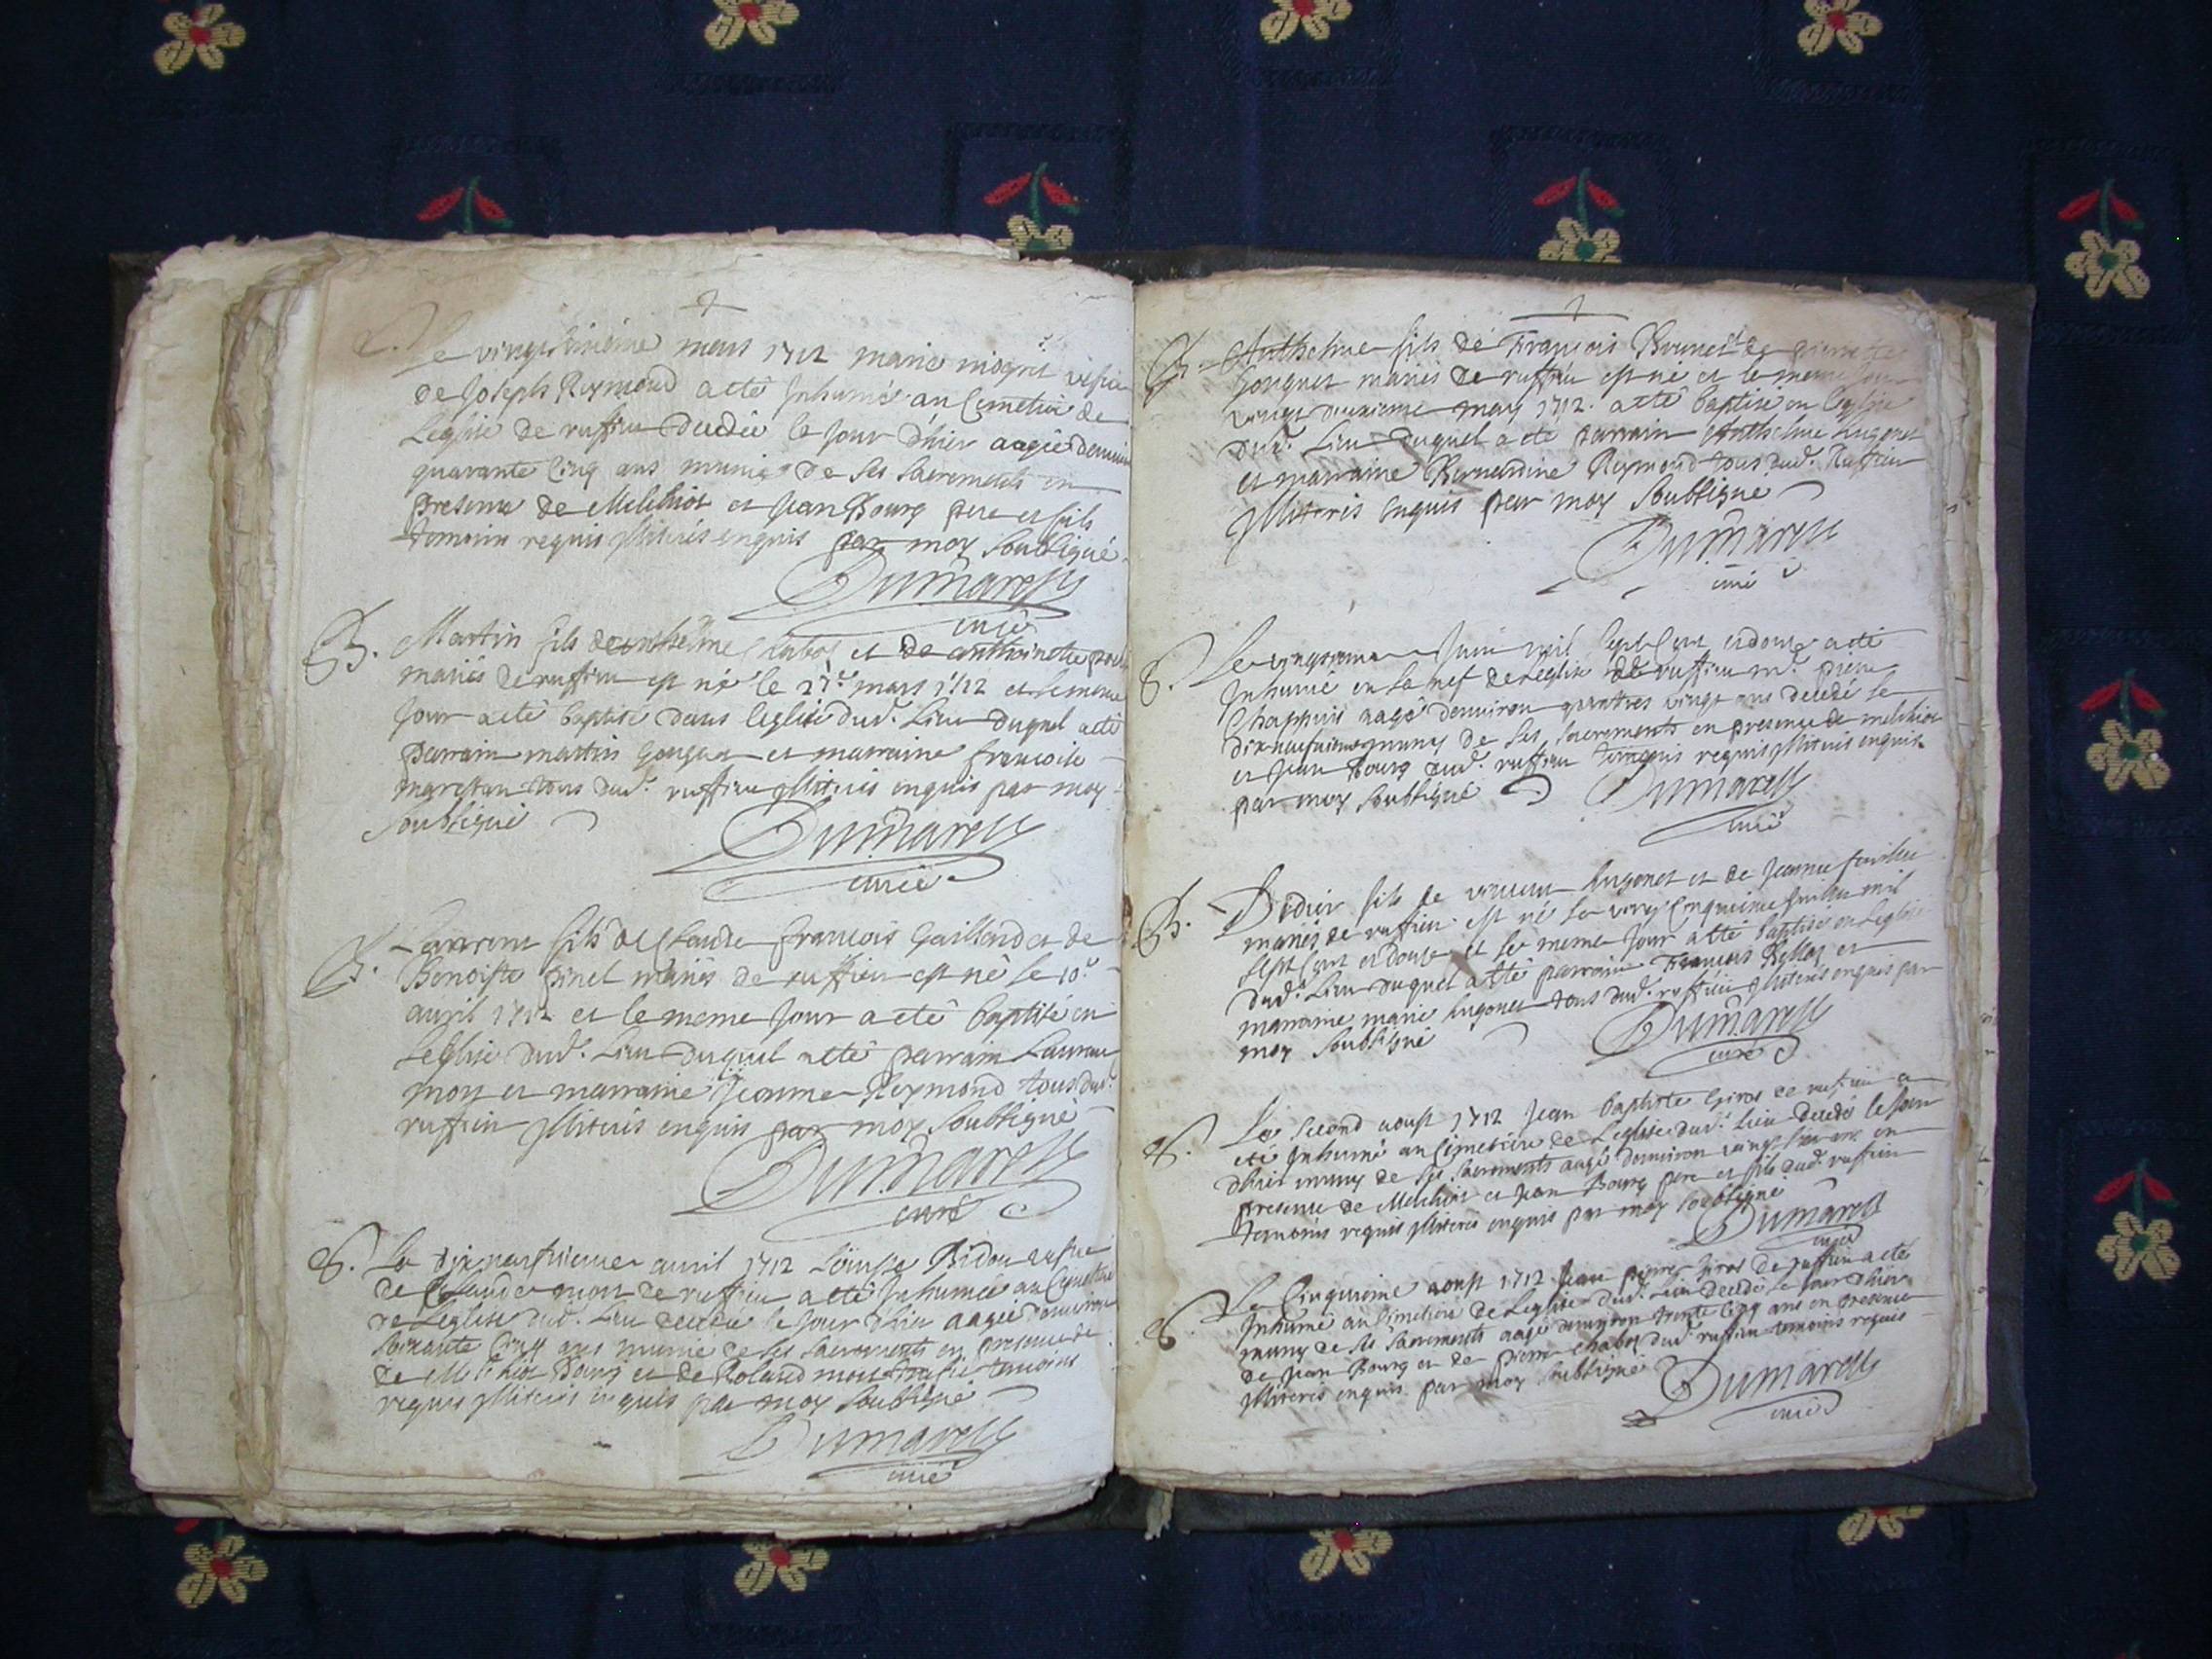 Le vingt sixieme mars 1712 marie
de Joseph Reymond a eté Inhumée au Cimetiere de
Leglise de ruffieu decedée le Jour d'hier aagée denviron
quarante Cinq ans munie de ses sacrements en
presence de Melchiot et Jean Bourg pere et fils
temoins requis illiterés enquis par moy soubsigné
Dumarest
curé
B. Martin fils de anthelme et de anthoinette
mariés de ruffieu est né le 27e mars 1712 et le meme
Jour a eté baptisé dans leglise dud. Lieu duquel a eté
parrain martin et marraine francoise
tous dud. ruffieu illiterés enquis par moy
soubsigné
Dumarest
curé
B. Laurent fils de Claude francois Gaillard et de
Benoiste pinet mariés de ruffieu est né le 10e
avril 1712 et le meme Jour a eté baptisé en
Leglise dud. Lieu duquel a eté parrain Laurent
moy et marraine Jeanne Reymond tous dud.
ruffieu illiterés enquis par moy soubsigné
Dumarest
curé
S. Le dix neufvieme avril 1712 Louise Bidon vefve
de Claude moy de ruffieu a eté Inhumée au Cimetiere
de Leglise dud. Lieu decedée le Jour d'hier aagée denviron
soixante ans munie de ses sacrements en presence de
de Melchiot Bourg et de Roland temoins
requis illiterés enquis par moy soubsigné
Dumarest
curé
B. Anthelme fils de François Brunet et de pierrette
Gonguet mariés de ruffieu est né et le meme Jour
vingt deuxieme may 1712. a eté baptisé en leglise
dud. Lieu duquel a eté parrain Anthelme hugonet
et marraine Bernardine Reymond tous dud. Ruffieu
Illiterés enquis par moy soubsigné
Dumarest
curé
S. Le Juin mil sept Cent et douze a eté
Inhumé en la nef de Leglise de ruffieu mr. pierre
Chappuis aagé denviron quatres vingt ans decedé le
dix neufvieme muny de ses sacrements en presence de melchiot
et Jean Bourg dud. ruffieu temoins requis illiterés enquis
par moy soubsigné
Dumarest
curé
B. Didier fils de vincent hugonet et de Jeanne
mariés de ruffieu est né le vingt Cinquieme Juillet mil
sept Cent et douze et le meme Jour a eté baptisé en Leglise
dud. Lieu duquel a eté parrain François et
marraine marie hugonet tous dud. ruffieu illiterés enquis par
moy soubsigné
Dumarest
curé
S. Le second aoust 1712 Jean baptiste Giros de ruffieu a
eté Inhumé au Cimetiere de Leglise dud. Lieu decedé le Jour
d'hier muny de ses sacrements aagé denviron vingt ans en
presence de Melchiot et Jean Bourg pere et fils dud. ruffieu
temoins requis illiterés enquis par moy soubsigné
Dumarest
curé
S. Le Cinquieme aoust 1712 Jean pierre Giros de ruffieu a eté
Inhumé au Cimetiere de Leglise dud. Lieu decedé le Jour d'hier
muny de ses sacrements aagé denviron trente Cinq ans en presence
de Jean Bourg et de pierre chaboz dud. ruffieu temoins requis
illiterés enquis par moy soubsigné
Dumarest
curé